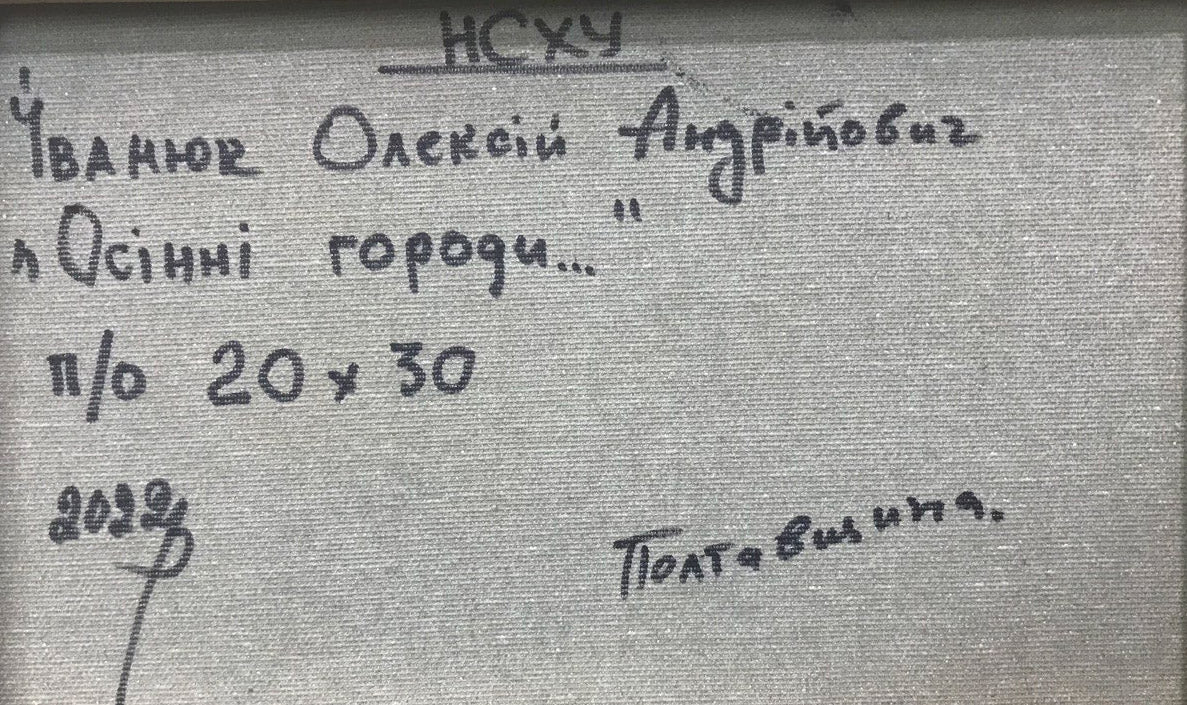 НСХУ
Іванюк Олексій Андрійович
„Осінні городи..."
п/о 20х30
2022р
Полтавщина.